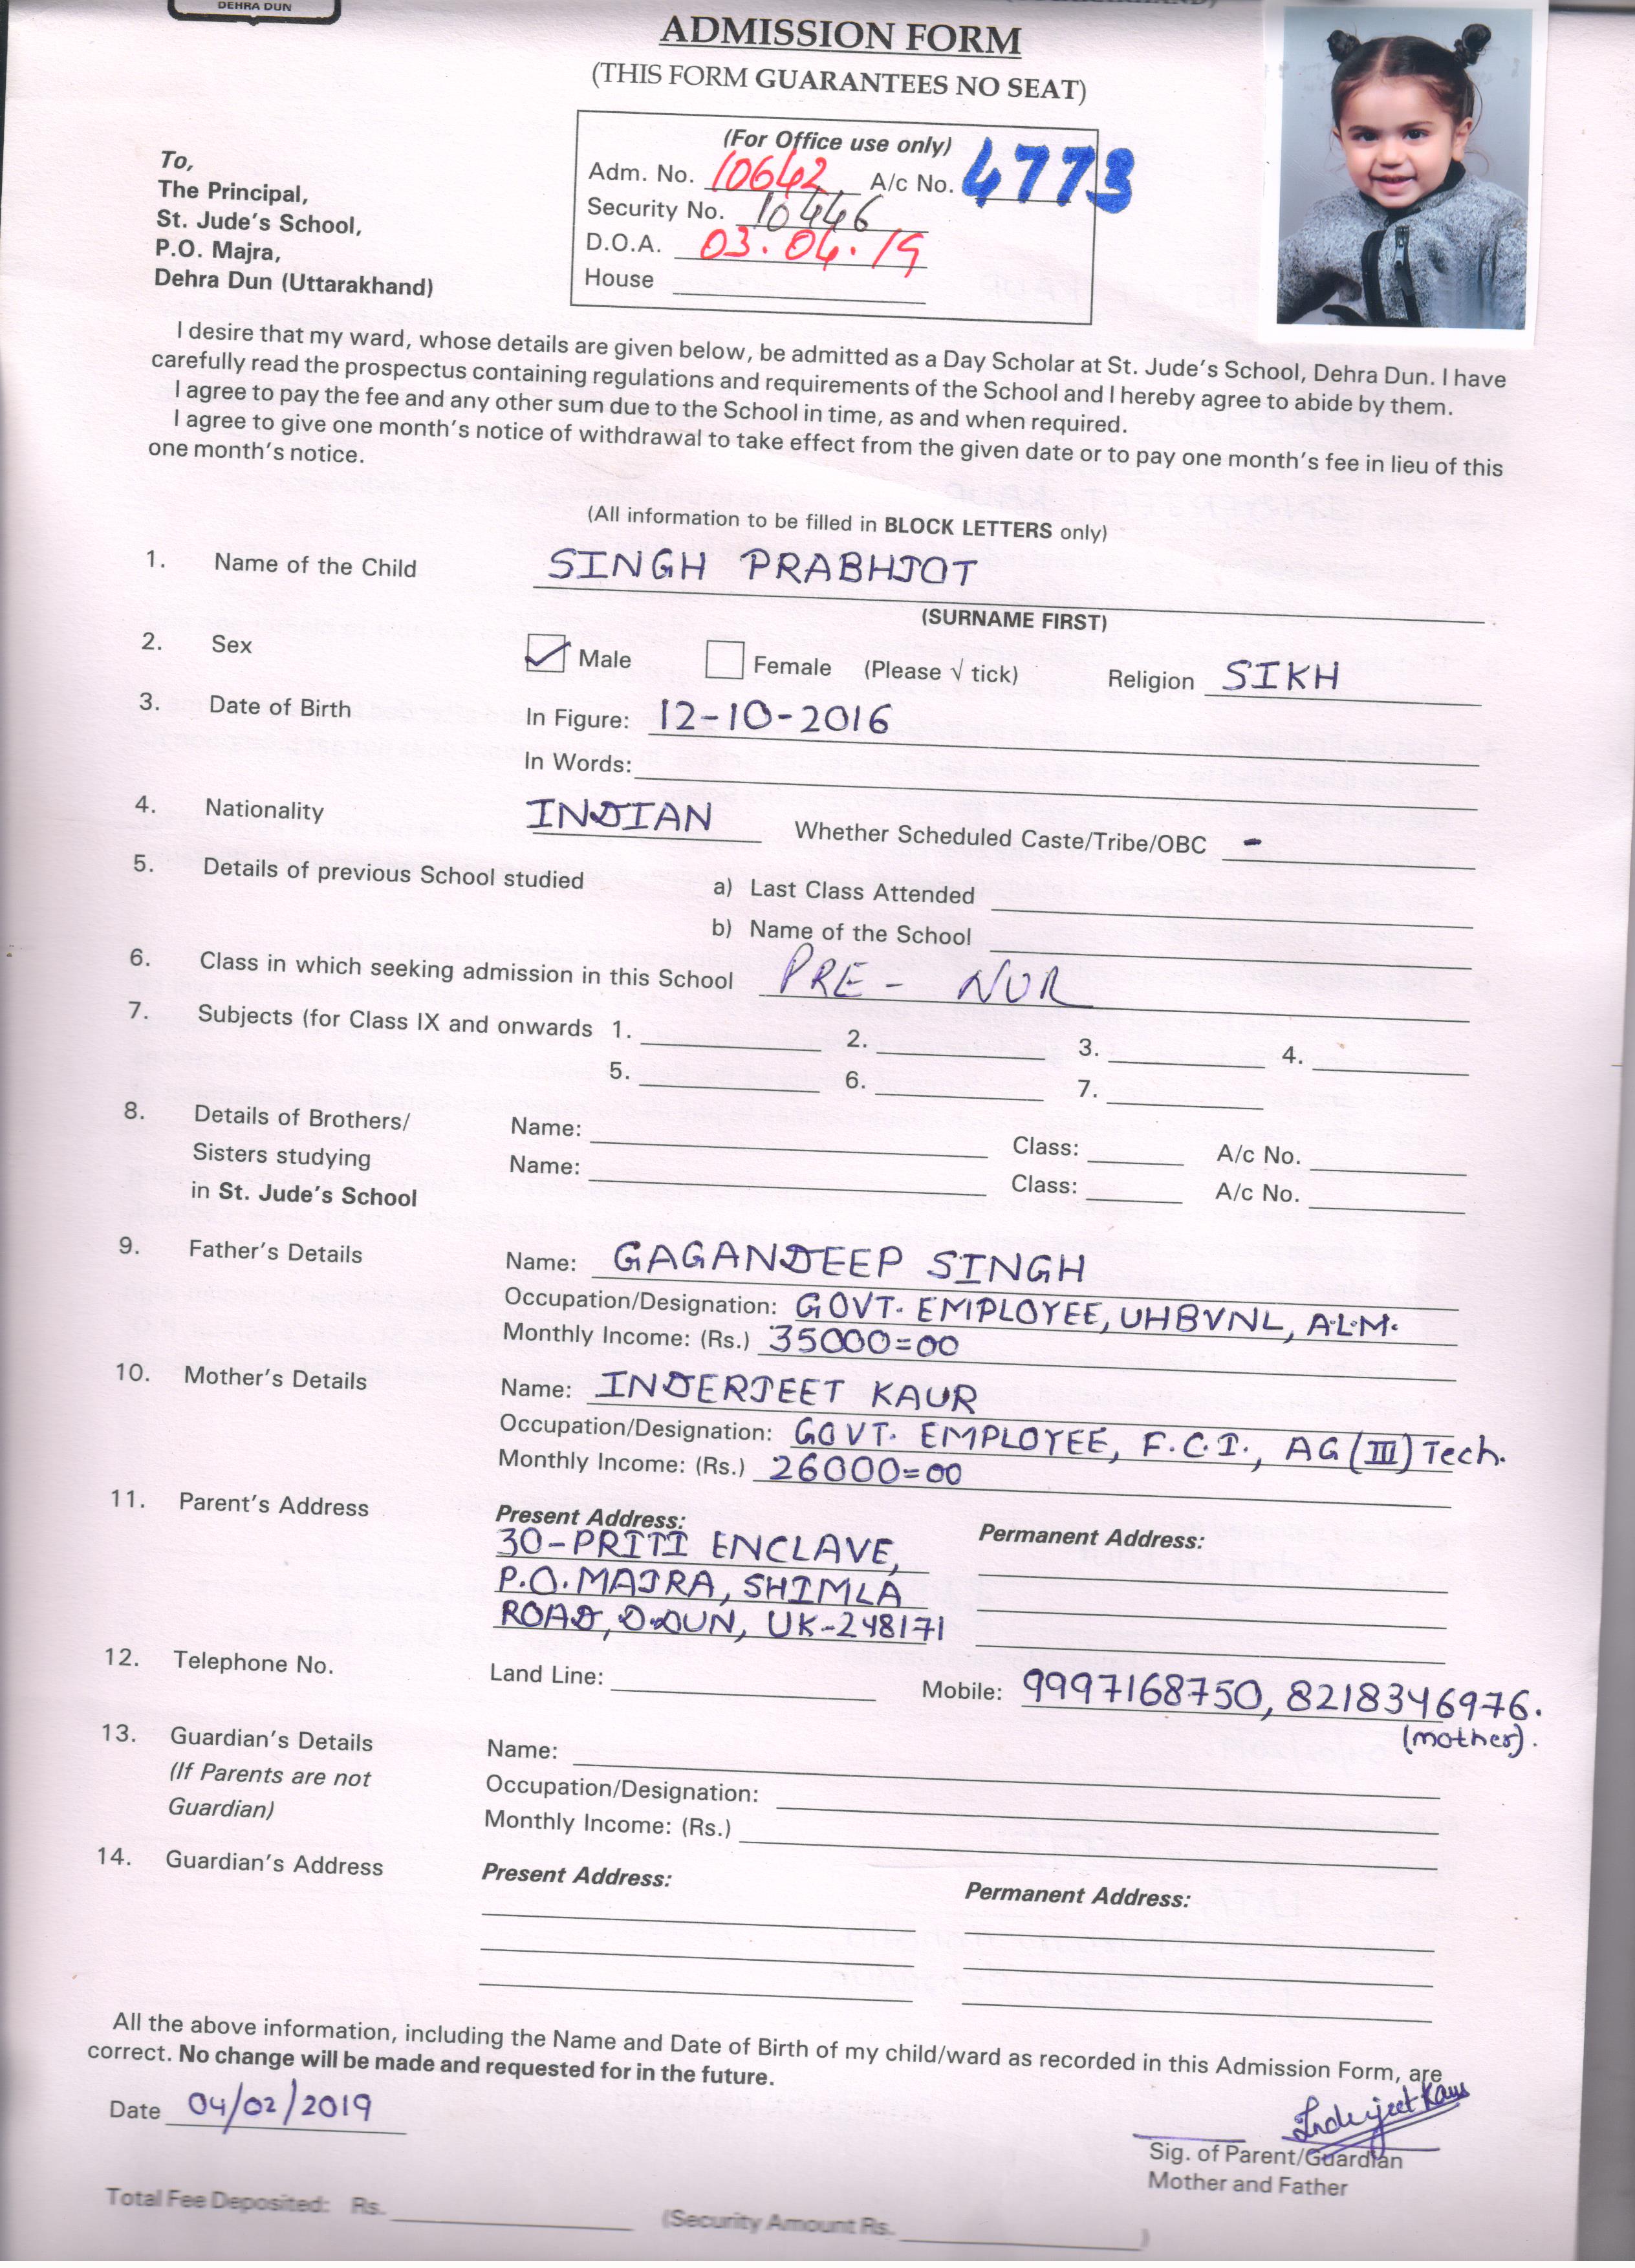 DEHRA DUN
ADMISSION FORM
(THIS FORM GUARANTEES NO SEAT)
(For Office use only)
Adm. No. 10642 A/c No. 4773
Security No. 10446
D.O.A. 03.04.19
House
To,
The Principal,
St. Jude's School,
P.O. Majra,
Dehra Dun (Uttarakhand)
I desire that my ward, whose details are given below, be admitted as a Day Scholar at St. Jude's School, Dehra Dun. I have
carefully read the prospectus containing regulations and requirements of the School and I hereby agree to abide by them.
I agree to pay the fee and any other sum due to the School in time, as and when required.
I agree to give one month's notice of withdrawal to take effect from the given date or to pay one month's fee in lieu of this
one month's notice.
(All information to be filled in BLOCK LETTERS only)
1. Name of the Child SINGH PRABHJOT
(SURNAME FIRST)
2. Sex Male Female (Please √ tick) Religion SIKH
3. Date of Birth In Figure: 12-10-2016
In Words:
4. Nationality INDIAN Whether Scheduled Caste/Tribe/OBC -
5. Details of previous School studied a) Last Class Attended
b) Name of the School
6. Class in which seeking admission in this School PRE - NUR
7. Subjects (for Class IX and onwards 1. 2. 3. 4.
5. 6. 7.
8. Details of Brothers/ Name: Class: A/c No.
Sisters studying Name: Class: A/c No.
in St. Jude's School
9. Father's Details Name: GAGANDEEP SINGH
Occupation/Designation: GOVT. EMPLOYEE, UHBVNL, A.L.M.
Monthly Income: (Rs.) 35000=00
10. Mother's Details Name: INDERJEET KAUR
Occupation/Designation: GOVT. EMPLOYEE, F.C.I., AG (III) Tech.
Monthly Income: (Rs.) 26000=00
11. Parent's Address Present Address: Permanent Address:
30-PRITI ENCLAVE,
P.O. MAJRA, SHIMLA
ROAD, D.DUN, UK-248171
12. Telephone No. Land Line: Mobile: 9997168750, 8218346976.
(mother).
13. Guardian's Details Name:
(If Parents are not Occupation/Designation:
Guardian) Monthly Income: (Rs.)
14. Guardian's Address Present Address: Permanent Address:
All the above information, including the Name and Date of Birth of my child/ward as recorded in this Admission Form, are
correct. No change will be made and requested for in the future.
Date 04/02/2019 Inderjeet Kaur
Sig. of Parent/Guardian
Mother and Father
Total Fee Deposited: Rs. (Security Amount Rs. )